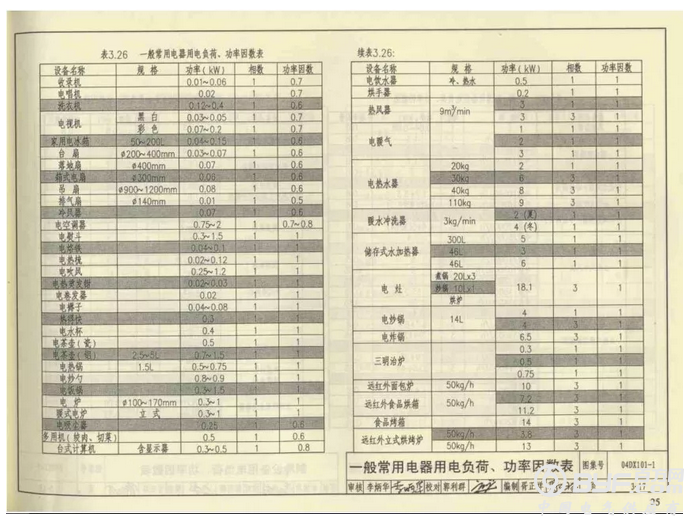 表3.26 一般常用电器用电负荷、功率因数表
设备名称 规格 功率(kW) 相数 功率因数
收录机 0.01~0.06 1 0.7
电唱机 0.02 1 0.7
洗衣机 0.12~0.4 1 0.6
电视机 黑白 0.03~0.05 1 0.7
彩色 0.07~0.2 1 0.7
家用电冰箱 50~200L 0.04~0.15 1 0.6
台扇 ø200~400mm 0.03~0.07 1 0.6
落地扇 ø400mm 0.07 1 0.6
箱式电扇 ø300mm 0.06 1 0.6
吊扇 ø900~1200mm 0.08 1 0.6
排气扇 ø140mm 0.01 1 0.5
冷风器 0.07 1 0.6
电空调器 0.75~2 1 0.7~0.8
电熨斗 0.3~1.5 1 1
电烙铁 0.04~0.1 1 1
电热梳 0.02~0.12 1 1
电吹风 0.25~1.2 1 1
电热烫发钳 0.02~0.03 1 1
电卷发器 0.02 1 1
电褥子 0.04~0.08 1 1
0.3 1 1
电水杯 0.4 1 1
电茶壶(瓷) 0.5 1 1
电茶壶(铝) 2.5~5L 0.7~1.5 1 1
电热锅 1.5L 0.5~0.75 1 1
电炒勺 0.8~0.9 1 1
电饭锅 0.3~1.5 1 1
电炉 ø100~170mm 0.3~1 1 1
腰式电炉 立式 0.3~1 1 1
电吸尘器 0.25 1 0.6
多用机(绞肉、切菜) 0.5 1 0.6
台式计算机 含显示器 0.3~0.5 1 0.8
续表3.26:
设备名称 规格 功率(kW) 相数 功率因数
电饮水器 冷、热水 0.5 1 1
烘手器 0.2 1 1
热风器 9m³/min 3 1 1
3 3 1
电暖气 1 1 1
2 1 1
3 1 1
电热水器 20kg 2 1 1
30kg 6 3 1
40kg 8 3 1
110kg 9 3 1
暖水冲洗器 3kg/min 2(夏) 1 1
4(冬) 1 1
储存式水加热器 300L 5 1 1
46L 3 1 1
46L 6 1 1
电灶 煮锅 20Lx3 18.1 3 1
炒锅 10Lx1
烘炉
电炒锅 14L 4 1 1
4 3 1
电炸锅 6.5 3 1
三明治炉 0.3 1 1
0.5 1 1
0.75 1 1
远红外面包炉 50kg/h 10 3 1
远红外食品烘箱 50kg/h 7.2 3 1
11.2 3 1
食品烤箱 14 3 1
远红外立式烘烤炉 50kg/h 3.8 3 1
50kg/h 13 3 1
一般常用电器用电负荷、功率因数表 图集号 04DX101-1
审核 李炳华 校对 郭利群 编制
3-17
95